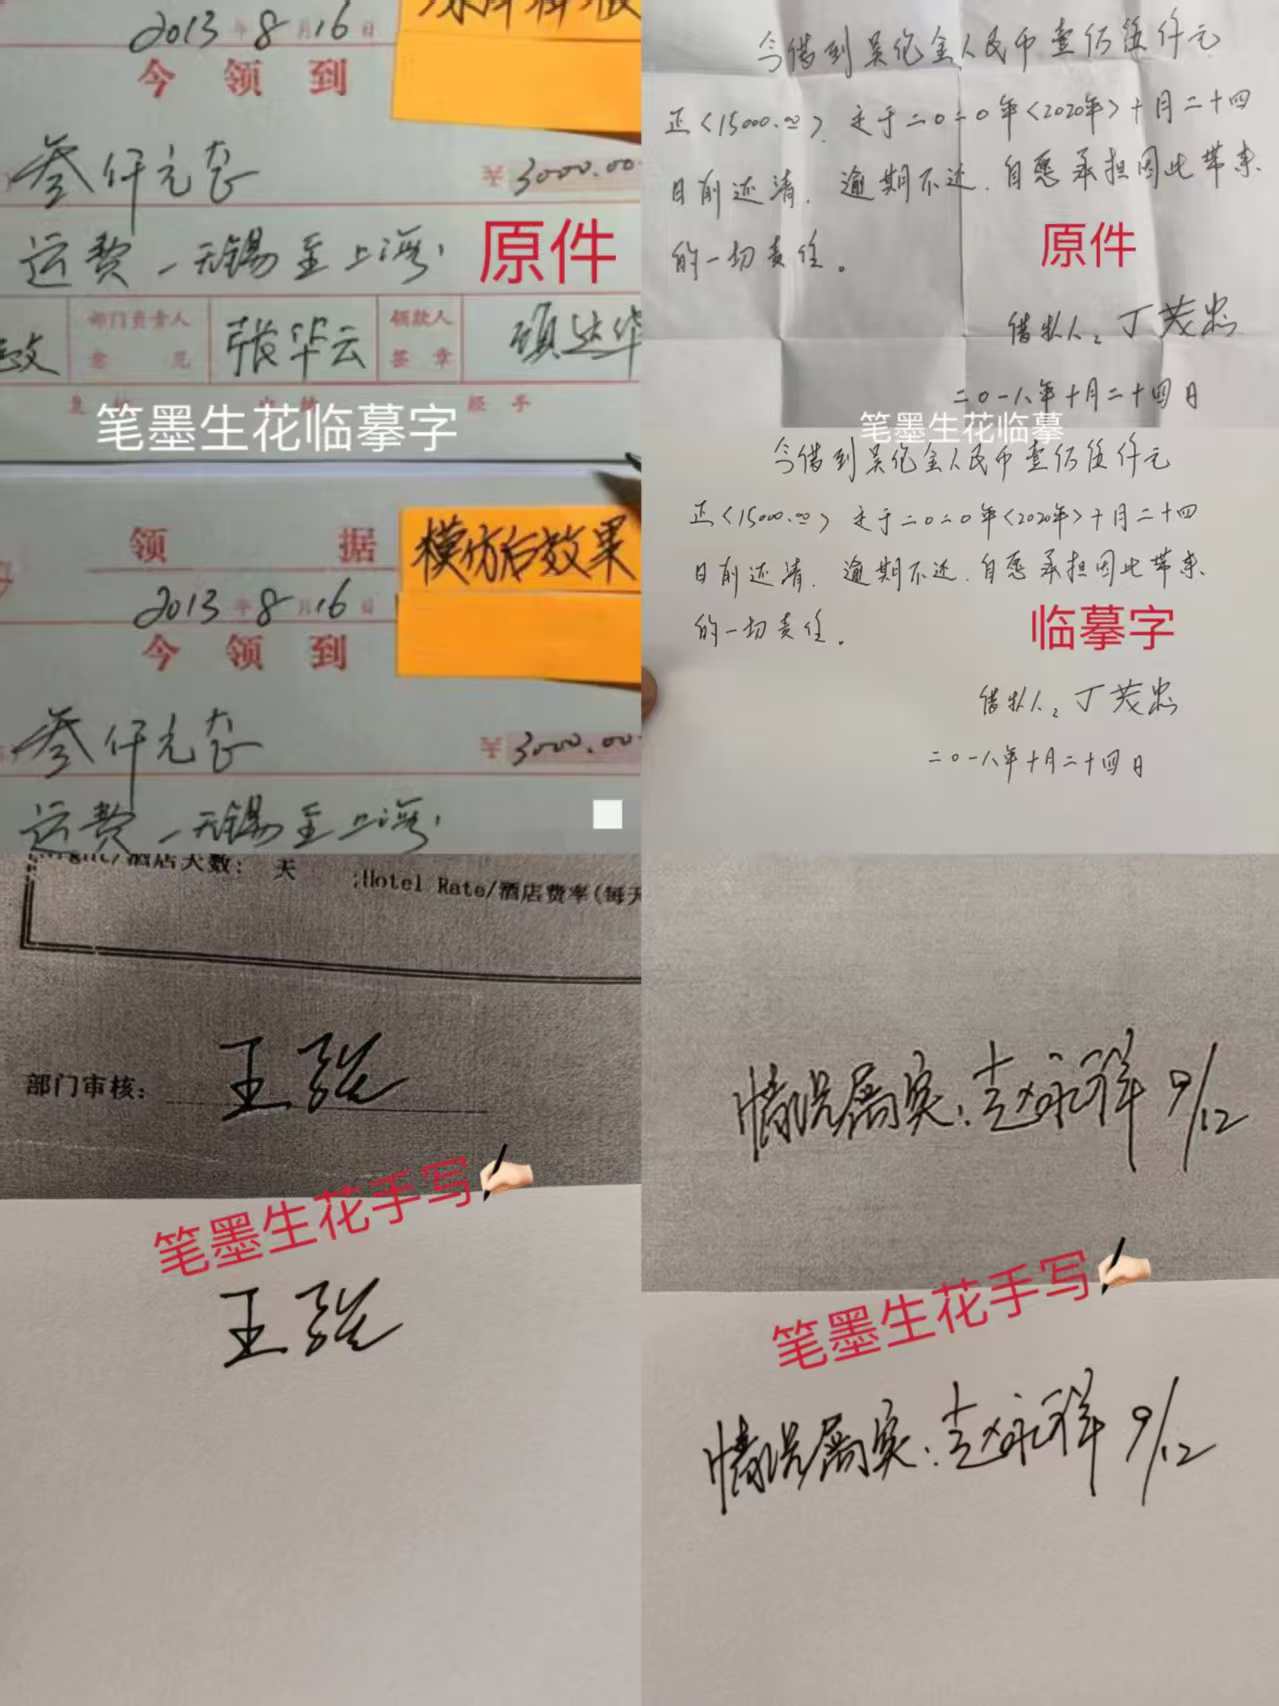 2013年8月16日
今领到
叁仟元整
¥3000.00
运费—无锡至上海
原件
部门负责人
意见
张华云
领款人
签章
顾达华
经手
笔墨生花临摹字
领据
模仿后效果
2013年8月16日
今领到
叁仟元整
¥3000.00
运费—无锡至上海
今借到吴伦金人民币壹仟伍仟元
正〈15000.00〉定于二〇二〇年〈2020年〉十月二十四
日前还清。逾期不还.自愿承担因此带来
的一切责任。
原件
借款人:丁茂忠
二〇一八年十月二十四日
笔墨生花临摹
今借到吴伦金人民币壹仟伍仟元
正〈15000.00〉定于二〇二〇年〈2020年〉十月二十四
日前还清.逾期不还.自愿承担因此带来
的一切责任。
临摹字
借款人:丁茂忠
二〇一八年十月二十四日
/酒店天数: 天
:Hotel Rate/酒店费率(每天
部门审核:
王强
笔墨生花手写
王强
情况属实:赵咏祥 9/12
笔墨生花手写
情况属实:赵咏祥 9/12